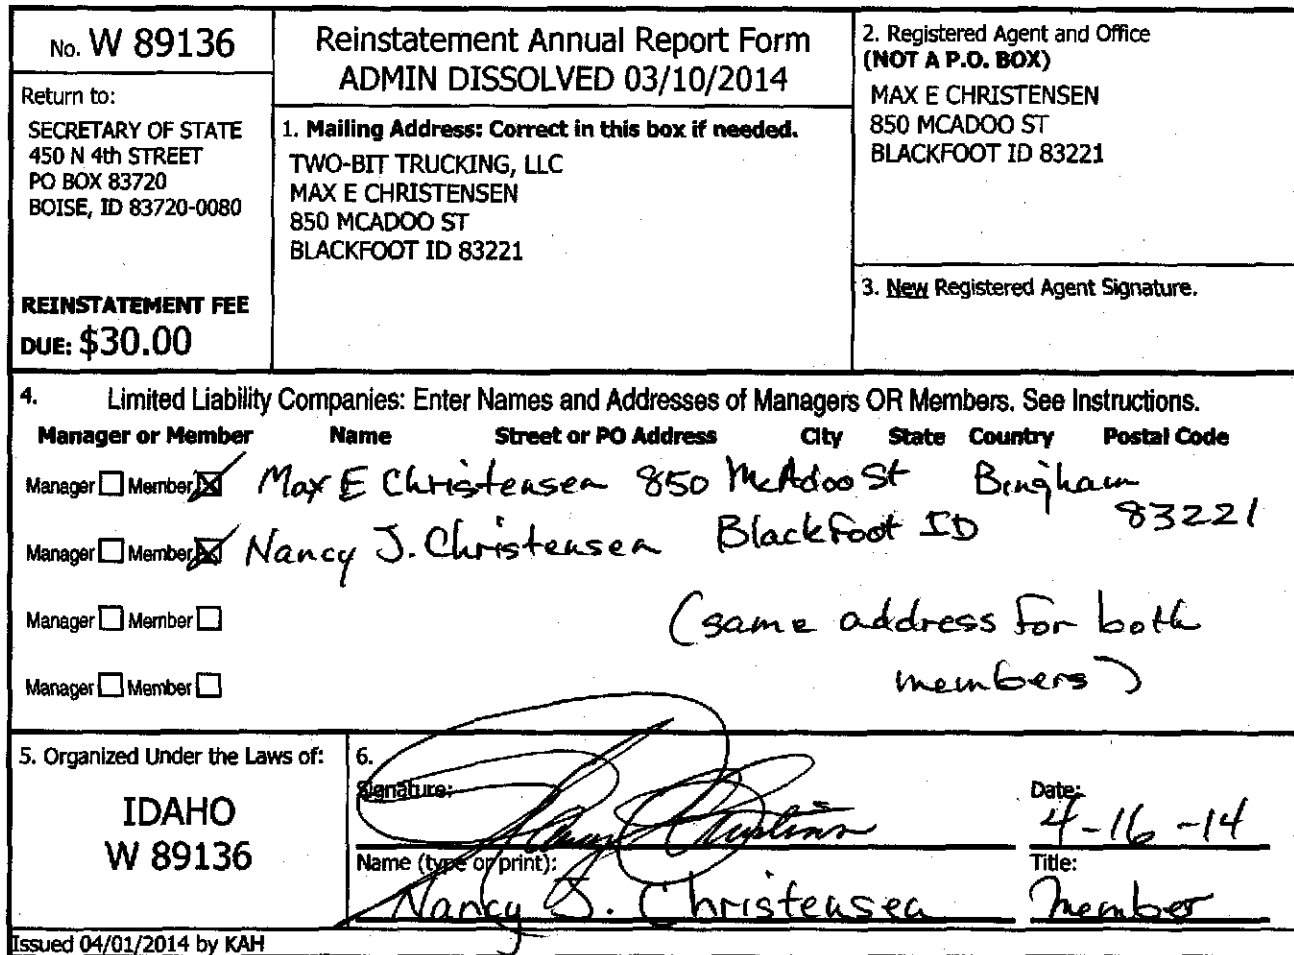 No. W 89136
Return to:
SECRETARY OF STATE
450 N 4th STREET
PO BOX 83720
BOISE, ID 83720-0080
REINSTATEMENT FEE
DUE: $30.00
Reinstatement Annual Report Form
ADMIN DISSOLVED 03/10/2014
1. Mailing Address: Correct in this box if needed.
TWO-BIT TRUCKING, LLC
MAX E CHRISTENSEN
850 MCADOO ST
BLACKFOOT ID 83221
2. Registered Agent and Office
(NOT A P.O. BOX)
MAX E CHRISTENSEN
850 MCADOO ST
BLACKFOOT ID 83221
3. New Registered Agent Signature.
4. Limited Liability Companies: Enter Names and Addresses of Managers OR Members. See Instructions.
Manager or Member Name Street or PO Address City State Country Postal Code
Manager Member Max E Christensen 850 McAdoo St Bingham
83221
Manager Member Nancy J. Christensen Blackfoot ID
Manager Member (same address for both
Manager Member members)
5. Organized Under the Laws of:
IDAHO
W 89136
6.
Signature:
Date:
4-16-14
Name (type or print):
Nancy J. Christensen
Title:
Member
Issued 04/01/2014 by KAH